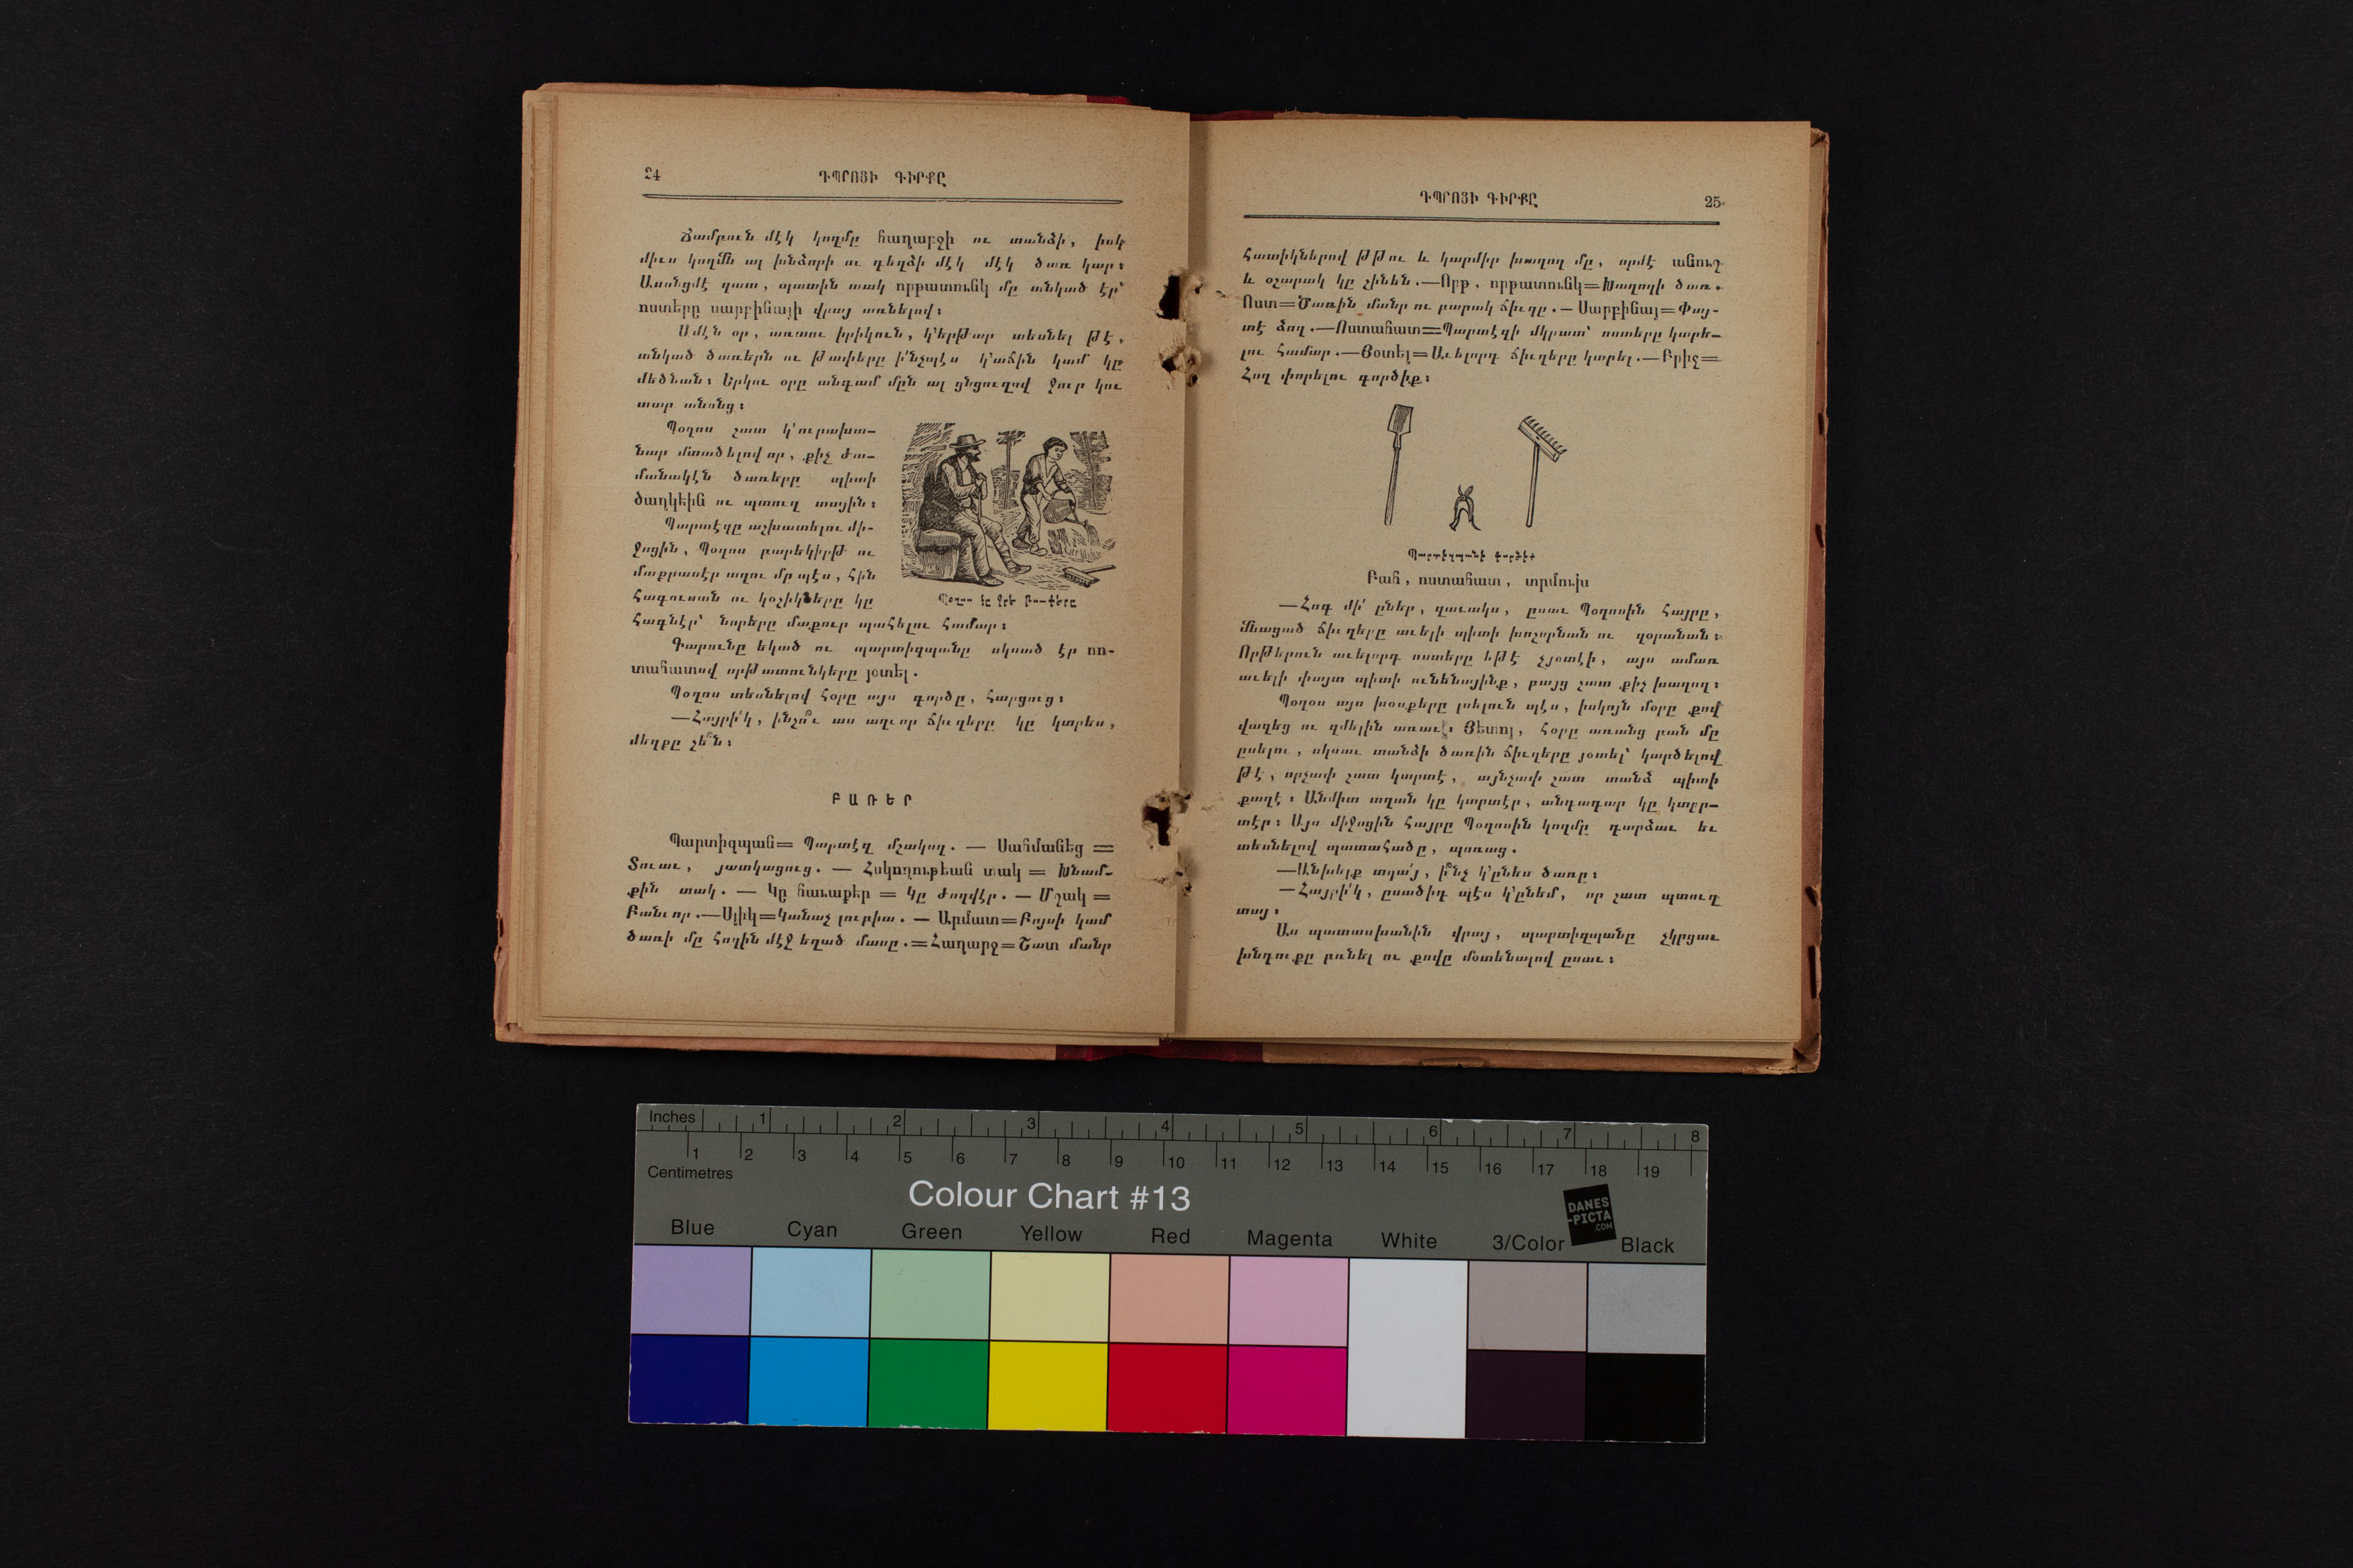 24
ԴՊՐՈՑԻ ԳԻՐՔԸ
Ճամբուն մէկ կողմը հաղարջի ու տանձի, իսկ
միւս կողմն ալ խնձորի ու դեղձի մէկ մէկ ծառ կար։
Ասոնցմէ զատ, պատին տակ որթատունկ մը տնկած էր՝
ոստերը սարբինայի վրայ առնելով։
Ամէն օր, առտու իրիկուն, կ'երթար տեսնել թէ,
տնկած ծառերն ու թուփերը ի՛նչպէս կ'աճին կամ կը
մեծնան։ Երկու օրը անգամ մըն ալ ցնցուղով ջուր կու
տար անոնց։
Պօղոս շատ կ'ուրախա–
նար մտածելով որ, քիչ ժա–
մանակէն ծառերը պիտի
ծաղկեին ու պտուղ տային։
Պարտէզը աշխատելու մի–
ջոցին, Պօղոս բարեկիրթ ու
մաքրասէր աղու մը պէս, հին
հագուստն ու կօշիկները կը
հագնէր՝ նորերը մաքուր պահելու համար։
Պօղոս կը ջրէ ծառերը
Գարունը եկած ու պարտիզպանը սկսած էր ոս–
տահատով որթատունկերը յօտել.
Պօղոս տեսնելով հօրը այս գործը, հարցուց։
—Հայրի՛կ, ինչո՞ւ աս աղւոր ճիւղերը կը կտրես,
մեղքը չե՞ն։
ԲԱՌԵՐ
Պարտիզպան= Պարտէզ մշակող. — Սահմանեց =
Տուաւ, յատկացուց. — Հսկողութեան տակ = Խնամ–
քին տակ. — Կը հաւաքեր = Կը ժողվէր. — Մշակ =
Բանւոր.—Սլիկ=Կանաչ լուբիա. — Արմատ=Բոյսի կամ
ծառի մը հողին մէջ եղած մասը.=Հաղարջ=Շատ մանր
ԴՊՐՈՑԻ ԳԻՐՔԸ
25
հատիկներով թթու և կարմիր խաղող մը, որմէ անուշ
և օշարակ կը շինեն.—Որթ, որթատունկ=Խաղողի ծառ.
Ոստ=Ծառին մանր ու բարակ ճիւղը. — Սարբինայ=Փայ–
տէ ձող.—Ոստահատ=Պարտէզի մկրատ՝ ոստերը կտրե–
լու համար.—Յօտել=Աւելորդ ճիւղերը կտրել.—Բրիչ=
Հող փորելու գործիք։
Պարտիզպանի գործիք
Բահ, ոստահատ, տրմուխ
—Հոգ մի՛ ըներ, զաւակս, ըսաւ Պօղոսին հայրը,
մնացած ճիւղերը աւելի պիտի խոշորնան ու զօրանան։
Որթերուն աւելորդ ոստերը եթէ չյօտէի, այս ամառ
աւելի փայտ պիտի ունենայինք, բայց շատ քիչ խաղող։
Պօղոս այս խօսքերը լսելուն պէս, իսկոյն մօրը քով
վազեց ու զմելին առաւ։ Յետոյ, հօրը առանց բան մը
ըսելու, սկսաւ տանձի ծառին ճիւղերը յօտել՝ կարծելով
թէ, որչափ շատ կտրտէ, այնչափ շատ տանձ պիտի
քաղէ։ Անմիտ տղան կը կտրտէր, անդադար կը կտըր–
տէր։ Այս միջոցին հայրը Պօղոսին կողմը դարձաւ եւ
տեսնելով պատահածը, պոռաց.
—Անխելք տղա՛յ, ի՞նչ կ'ընես ծառը։
—Հայրի՛կ, ըսածիդ պէս կ'ընեմ, որ շատ պտուղ
տայ։
Աս պատասխանին վրայ, պարտիզպանը չկրցաւ
խնդուքը բռնել ու քովը մօտենալով ըսաւ։
Inches 1 2 3 4 5 6 7 8
1 2 3 4 5 6 7 8 9 10 11 12 13 14 15 16 17 18 19
Centimetres
Colour Chart #13
DANES
-PICTA
.COM
Blue Cyan Green Yellow Red Magenta White 3/Color Black